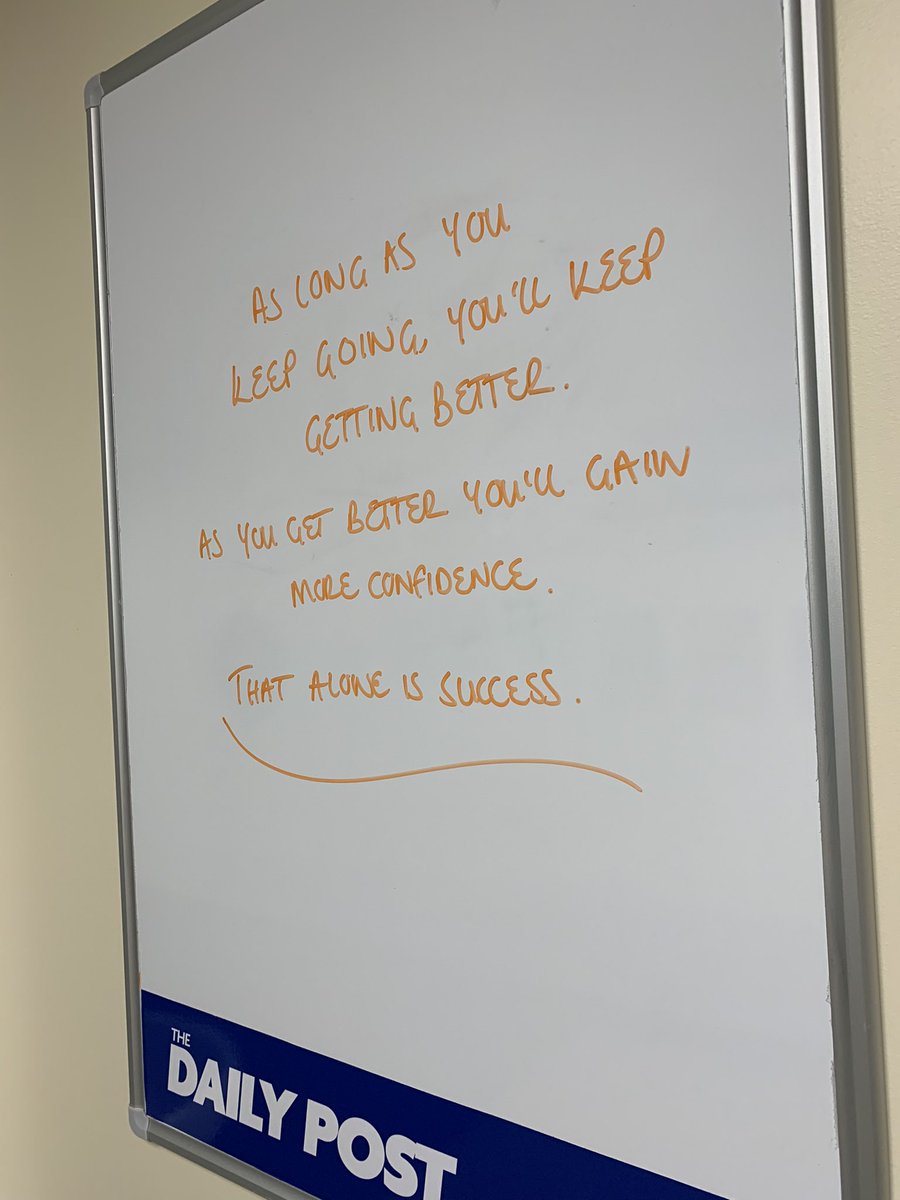 AS LONG AS YOU
KEEP GOING, YOU'LL KEEP
GETTING BETTER.
AS YOU GET BETTER YOU'LL GAIN
MORE CONFIDENCE.
THAT ALONE IS SUCCESS.
THE
DAILY POST